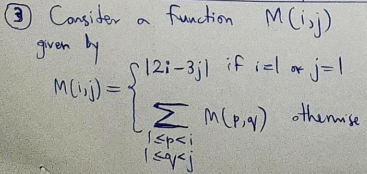 ③ Consider a function M(i,j)
given by
M(i,j) = { |2i-3j| if i=1 or j=1
∑ M(p,q) otherwise
1≤p<i
1≤q<j